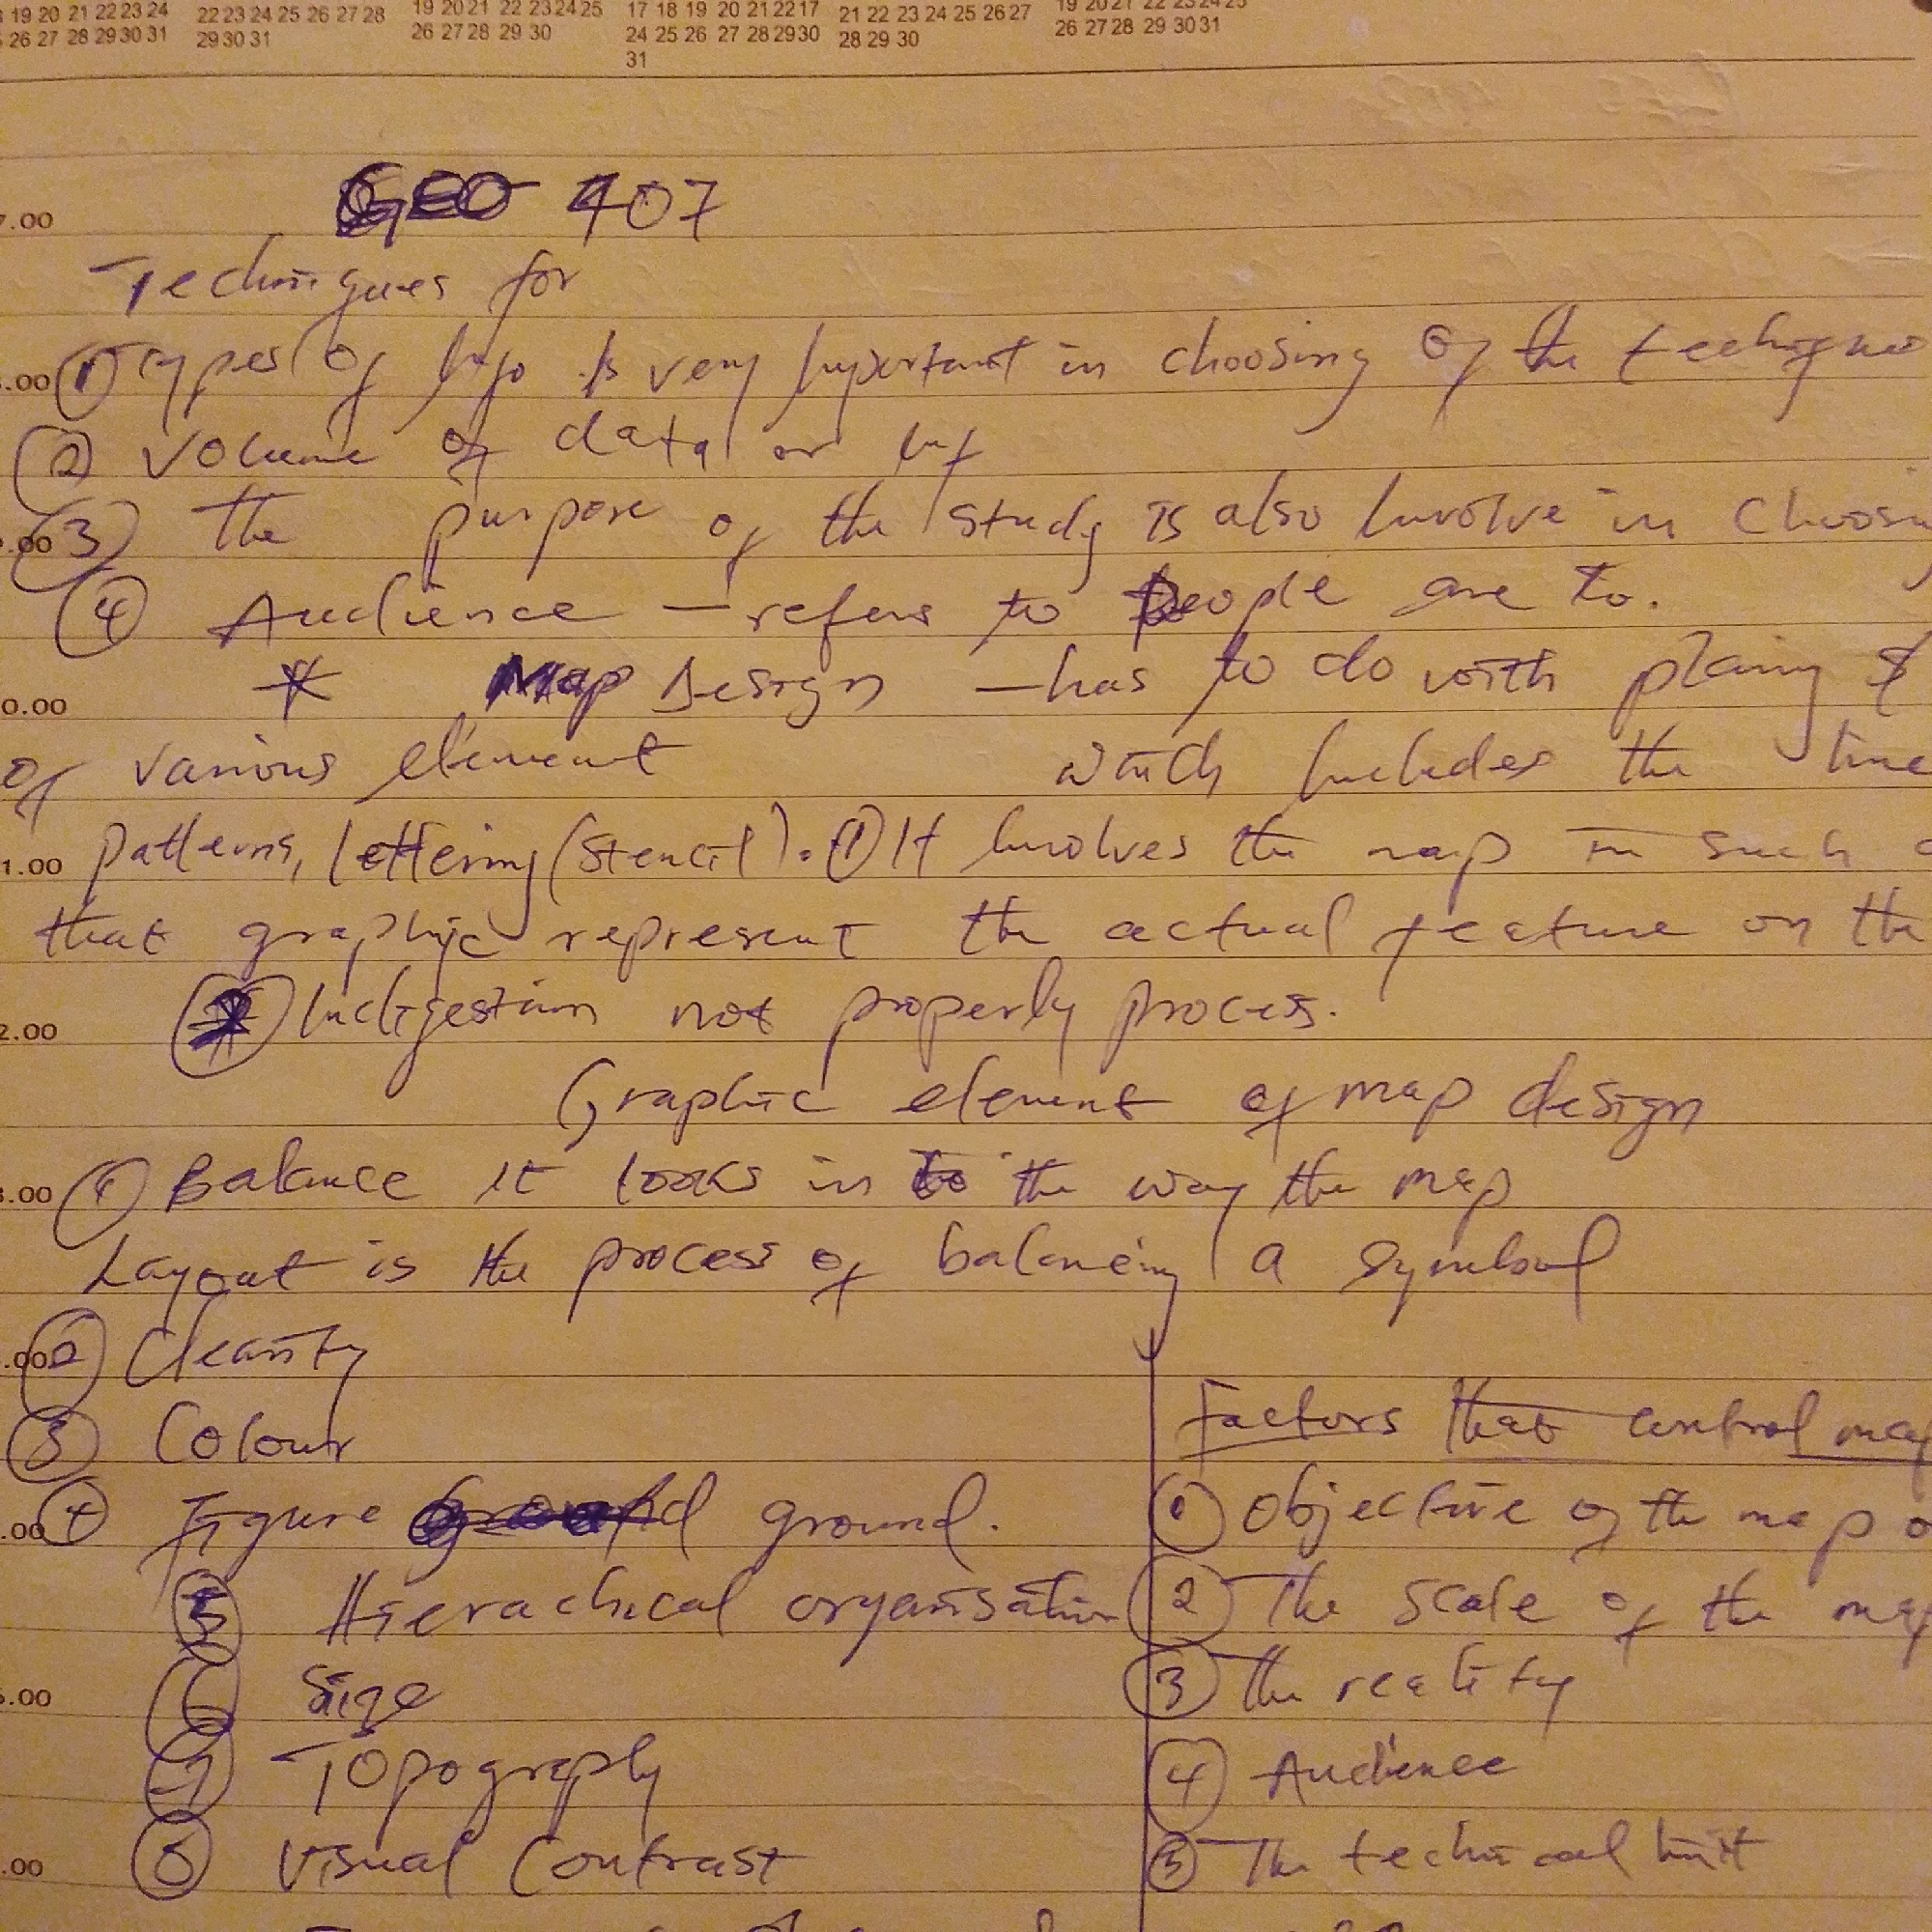 19 20 21 22 23 24
26 27 28 29 30 31
22 23 24 25 26 27 28
29 30 31
19 20 21 22 23 24 25
26 27 28 29 30
17 18 19 20 21 22 17
24 25 26 27 28 29 30
31
21 22 23 24 25 26 27
28 29 30
19 20 21 22 23 24 25
26 27 28 29 30 31
7.00 GEO 407
Techniques for
.00 ① Types of info is very important in choosing of the technique
② Volume of data or inf
.00 ③ The purpose of the study is also involve in choosing
④ Audience — refers to people are to.
0.00 * Map Design — has to do with plaing &
of various element which includes the line
1.00 patterns, lettering (stencil). ① It involves the map in such
that graphic represent the actual feature on the
2.00 Indigestion not properly process.
Graphic element of map design
3.00 ① Balance it looks in to the way the map
Layout is the process of balancing a symbol
.00 ② Clearity
③ Colour
Factors that control map
.00 ④ Figure ground.
⑤ Hierachical organisation
6.00 ⑥ Size
⑦ Topography
.00 ⑧ Visual Contrast
① Objective of the map o
② The scale of the map
③ The reality
④ Audience
⑤ The technical limit